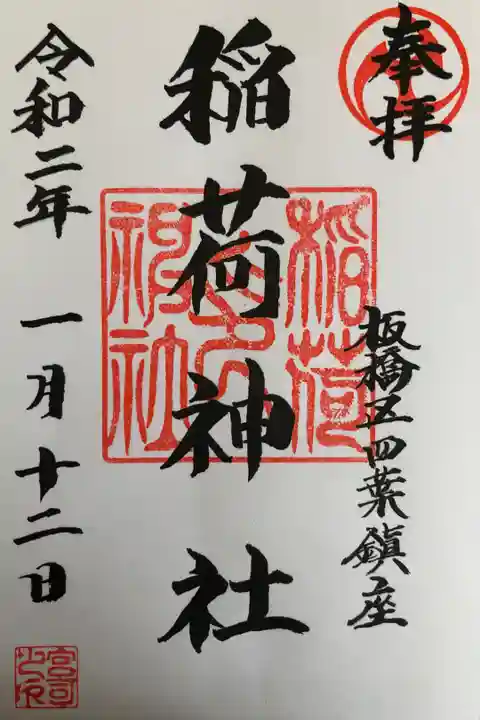 奉拝
板橋区四葉鎮座
稲荷神社
稲荷
神社
令和二年 一月十二日
宮司
之印